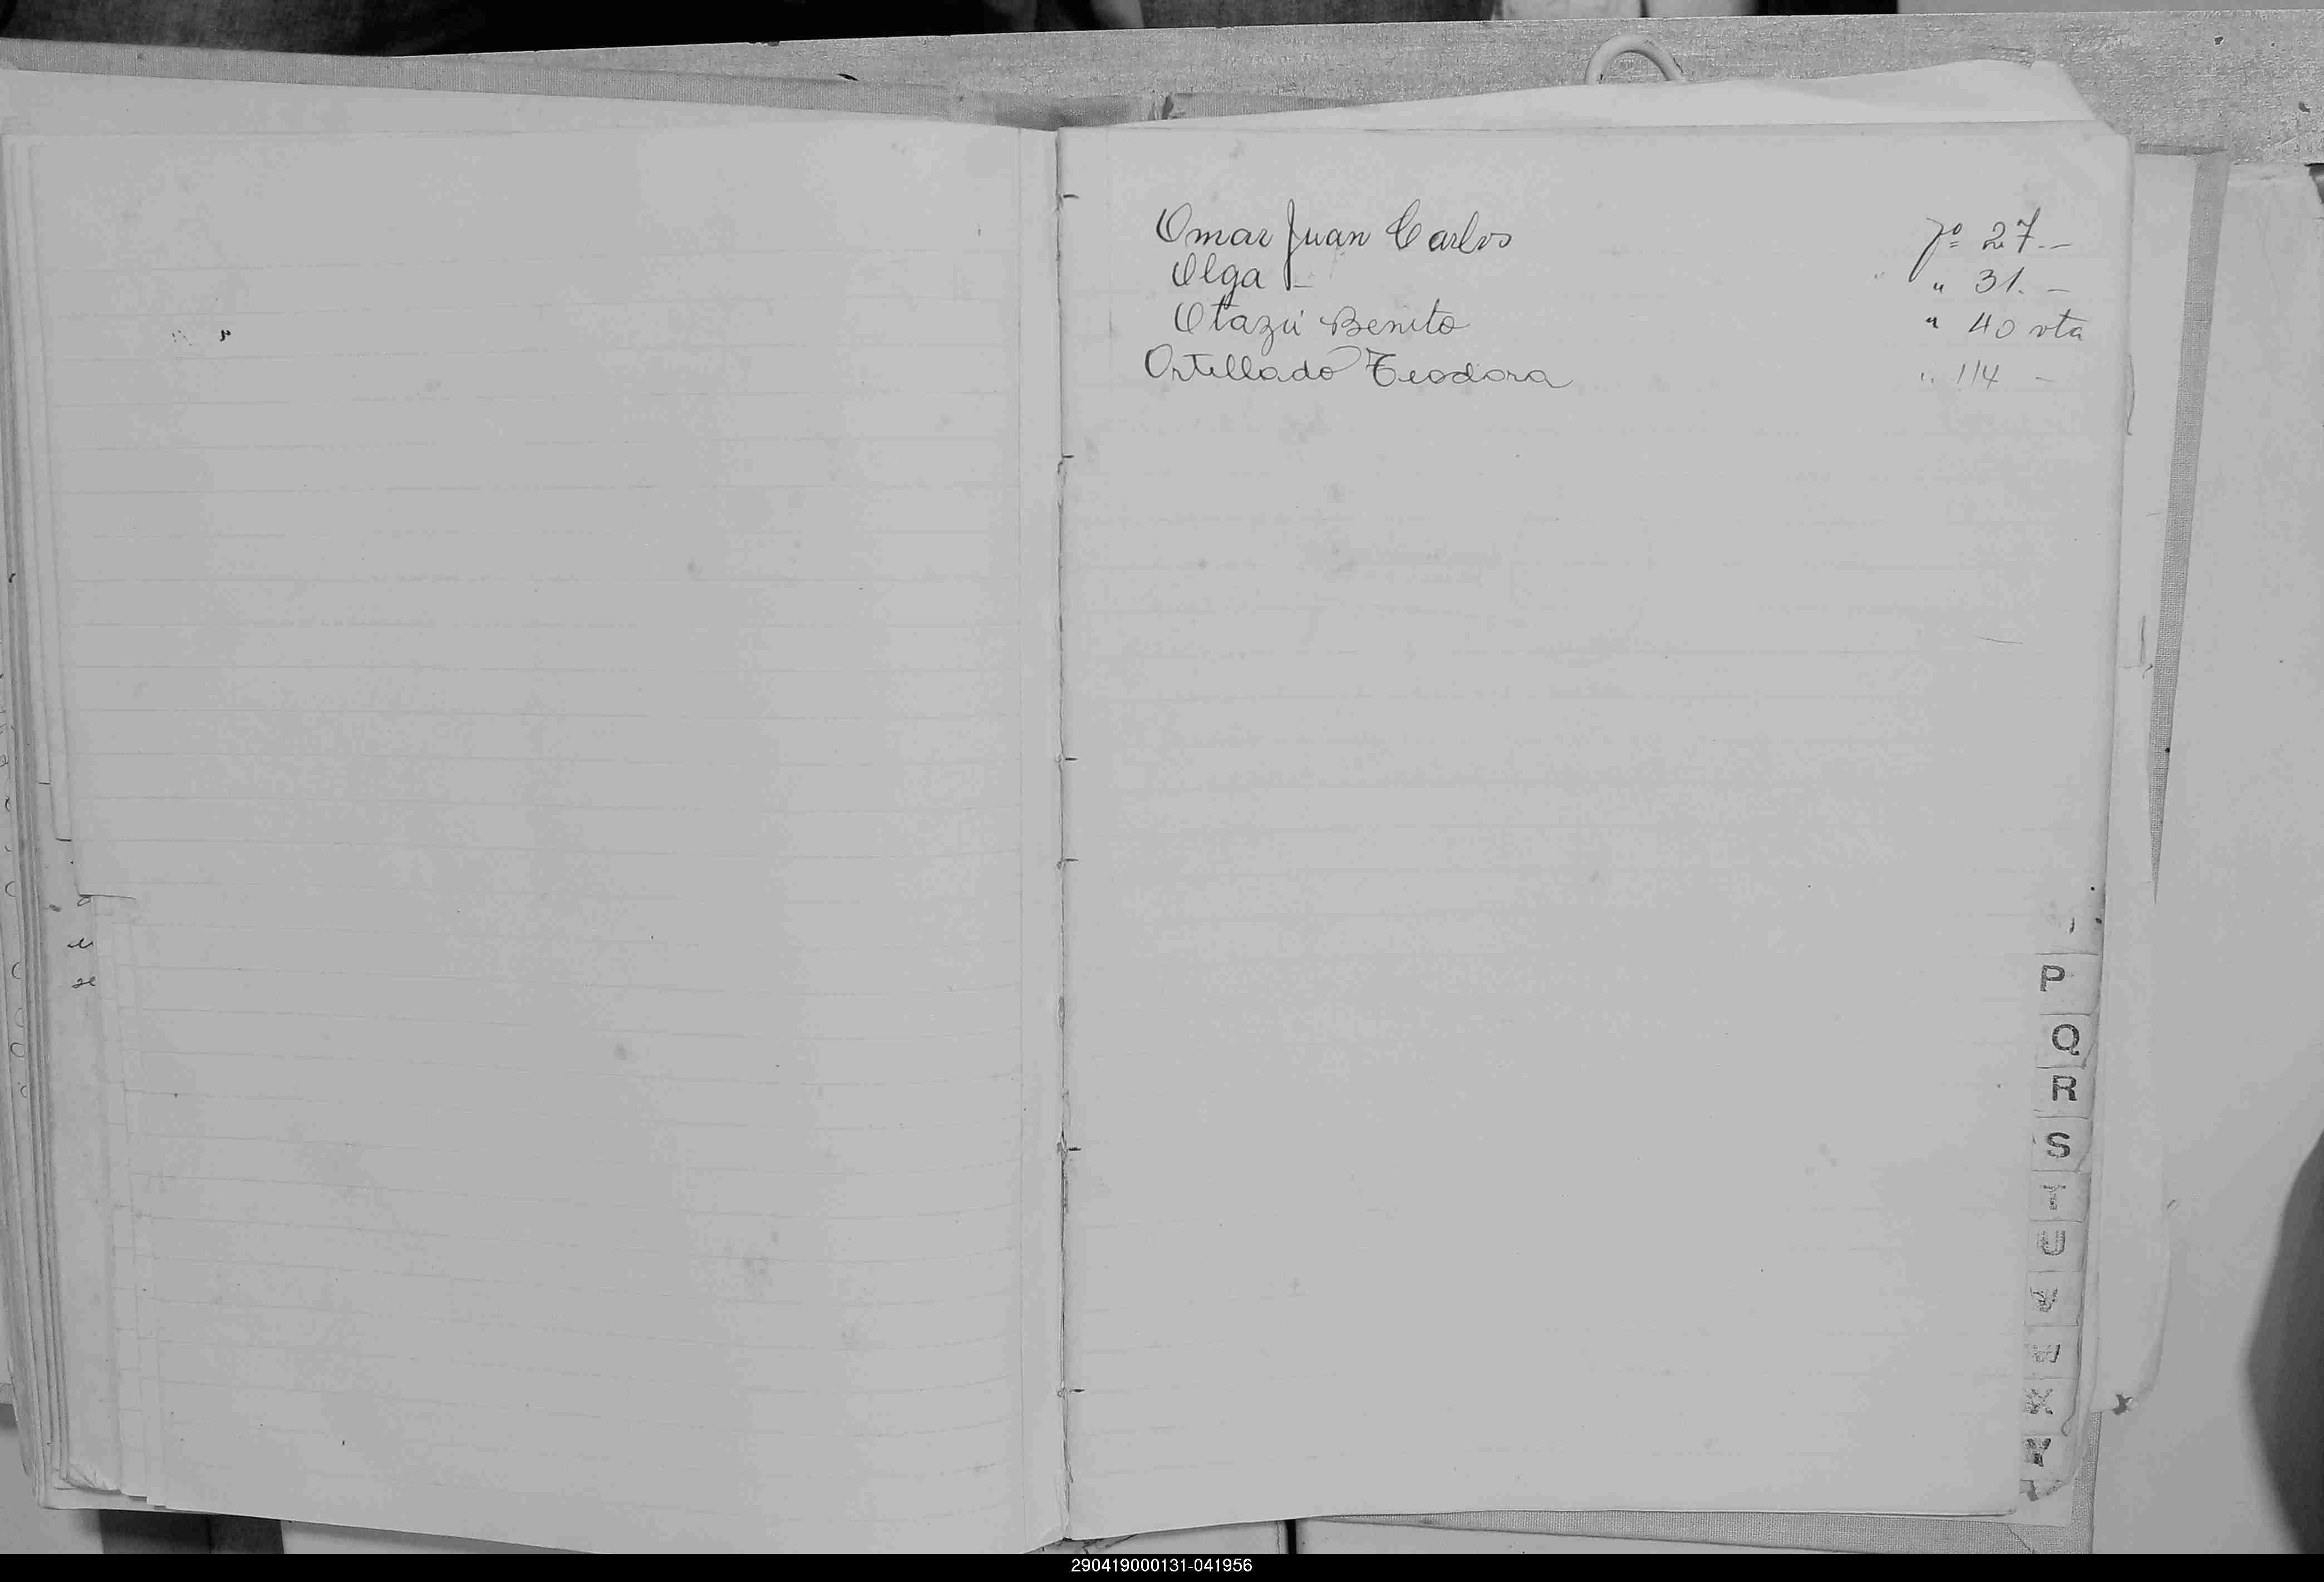 Omar Juan Carlos fº 27.-
Olga - " 31. -
Otazú Benito " 40 vta
Ortellado Teodora " 114 -
P
Q
R
S
T
U
V
W
X
Y
290419000131-041956